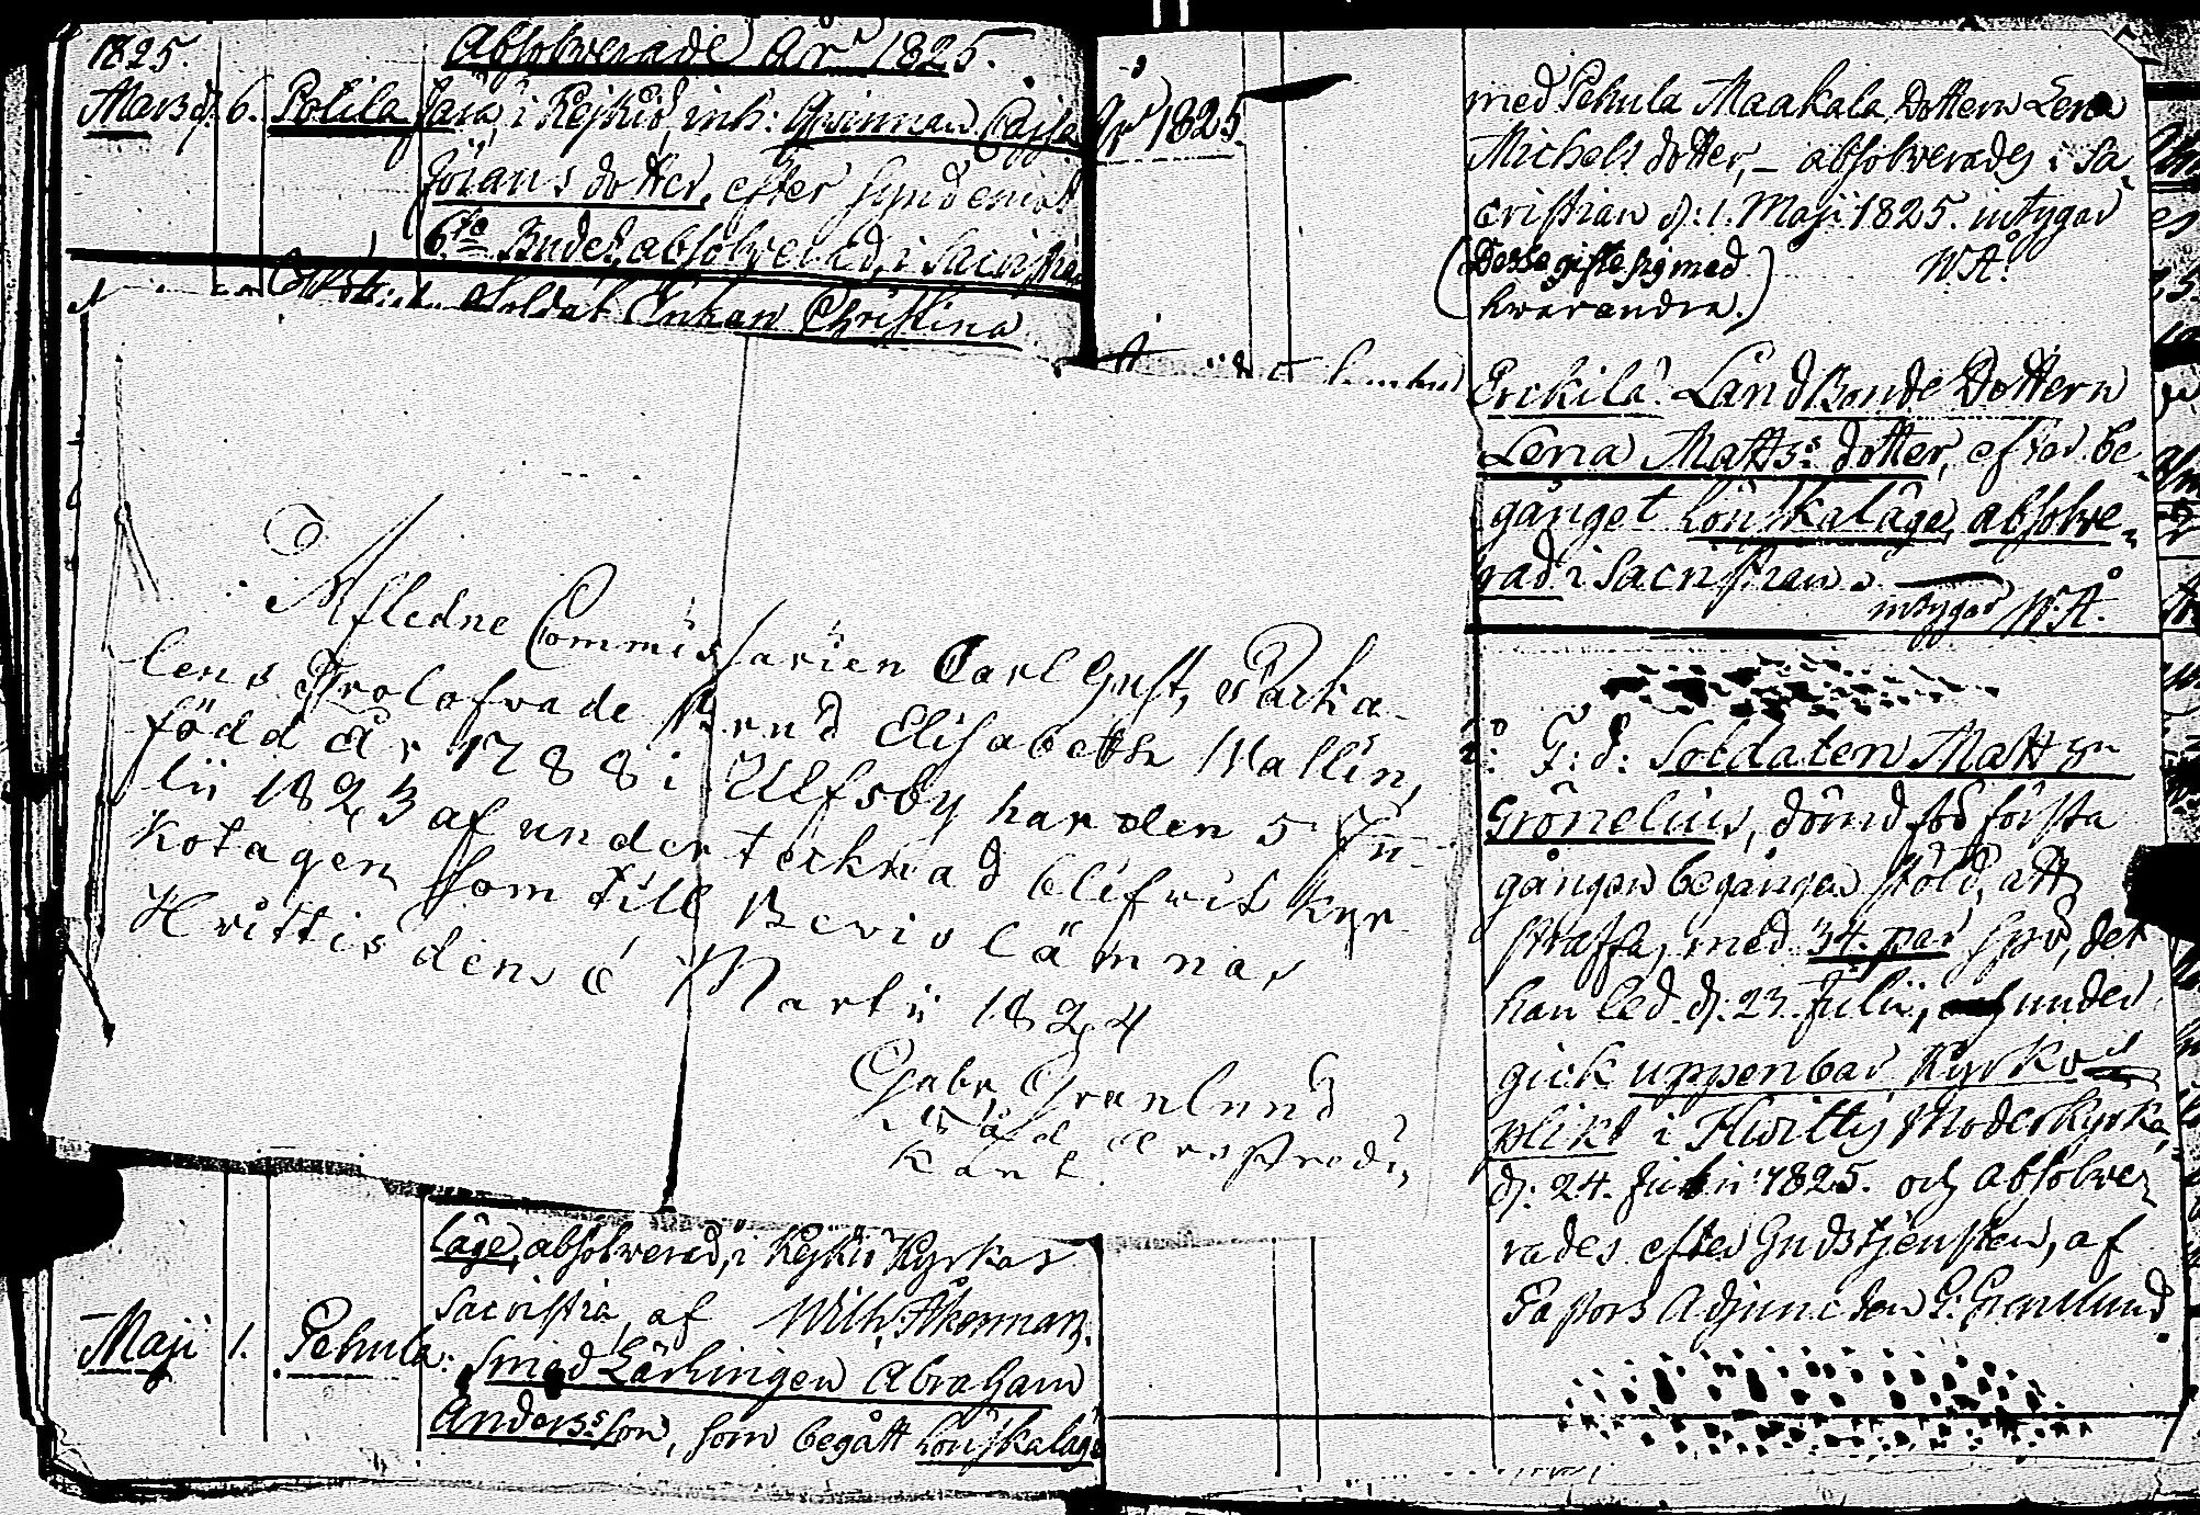 1825. Absolverade År 1825.
Mars d. 6. Potila Jara, i Kejkiö, inh: Qvinnan Cajsa
Görans dotter, efter synd emot
6te Budet, absolverad, i Sacristian
Soldat Enkan Christina
Afledne Commissarien Carl Gust. Packa-
lens Trolofvade Brud Elisabeth Wallin,
född År 1788 i Ulfsby har den 5 Ju-
lii 1823 af undertecknad blifwit kyr-
kotagen, som till Bevis lämnas
Hvittis den 6 Martii 1824
Gabr. Granlund
låge, absolverad, i Kejkiö Kyrkas
Sacristia, af Wilh. Åkerman.
Maji 1. Pehula: Smed Lärlingen Abraham
Anders:son, som begått lönskaläge
År 1825
med Pehula Maakala Dottern Lena
Michels dotter, – absolverades i Sa-
cristian d: 1. Maji 1825. intygar
(Desse gifte sig med W.Å.
hvarandra.)
Erckilä: LandBonde Dottern
Lena Matts: dotter, efter be-
gånget lönskaläge, absolve-
rad i Sacristian.
intygar W.Å.
F: d: Soldaten Matts
Grönelius, dömd för första
gången begången stöld, att
straffas med 34. par spö, det
han led d: 23. Julii, under
gick uppenbar Kyrko
plikt i Hvittis Moderkyrka,
d: 24. Julii 1825. och absolve-
rades efter Gudstjensten, af
Pastors Adjuncten G: Granlund